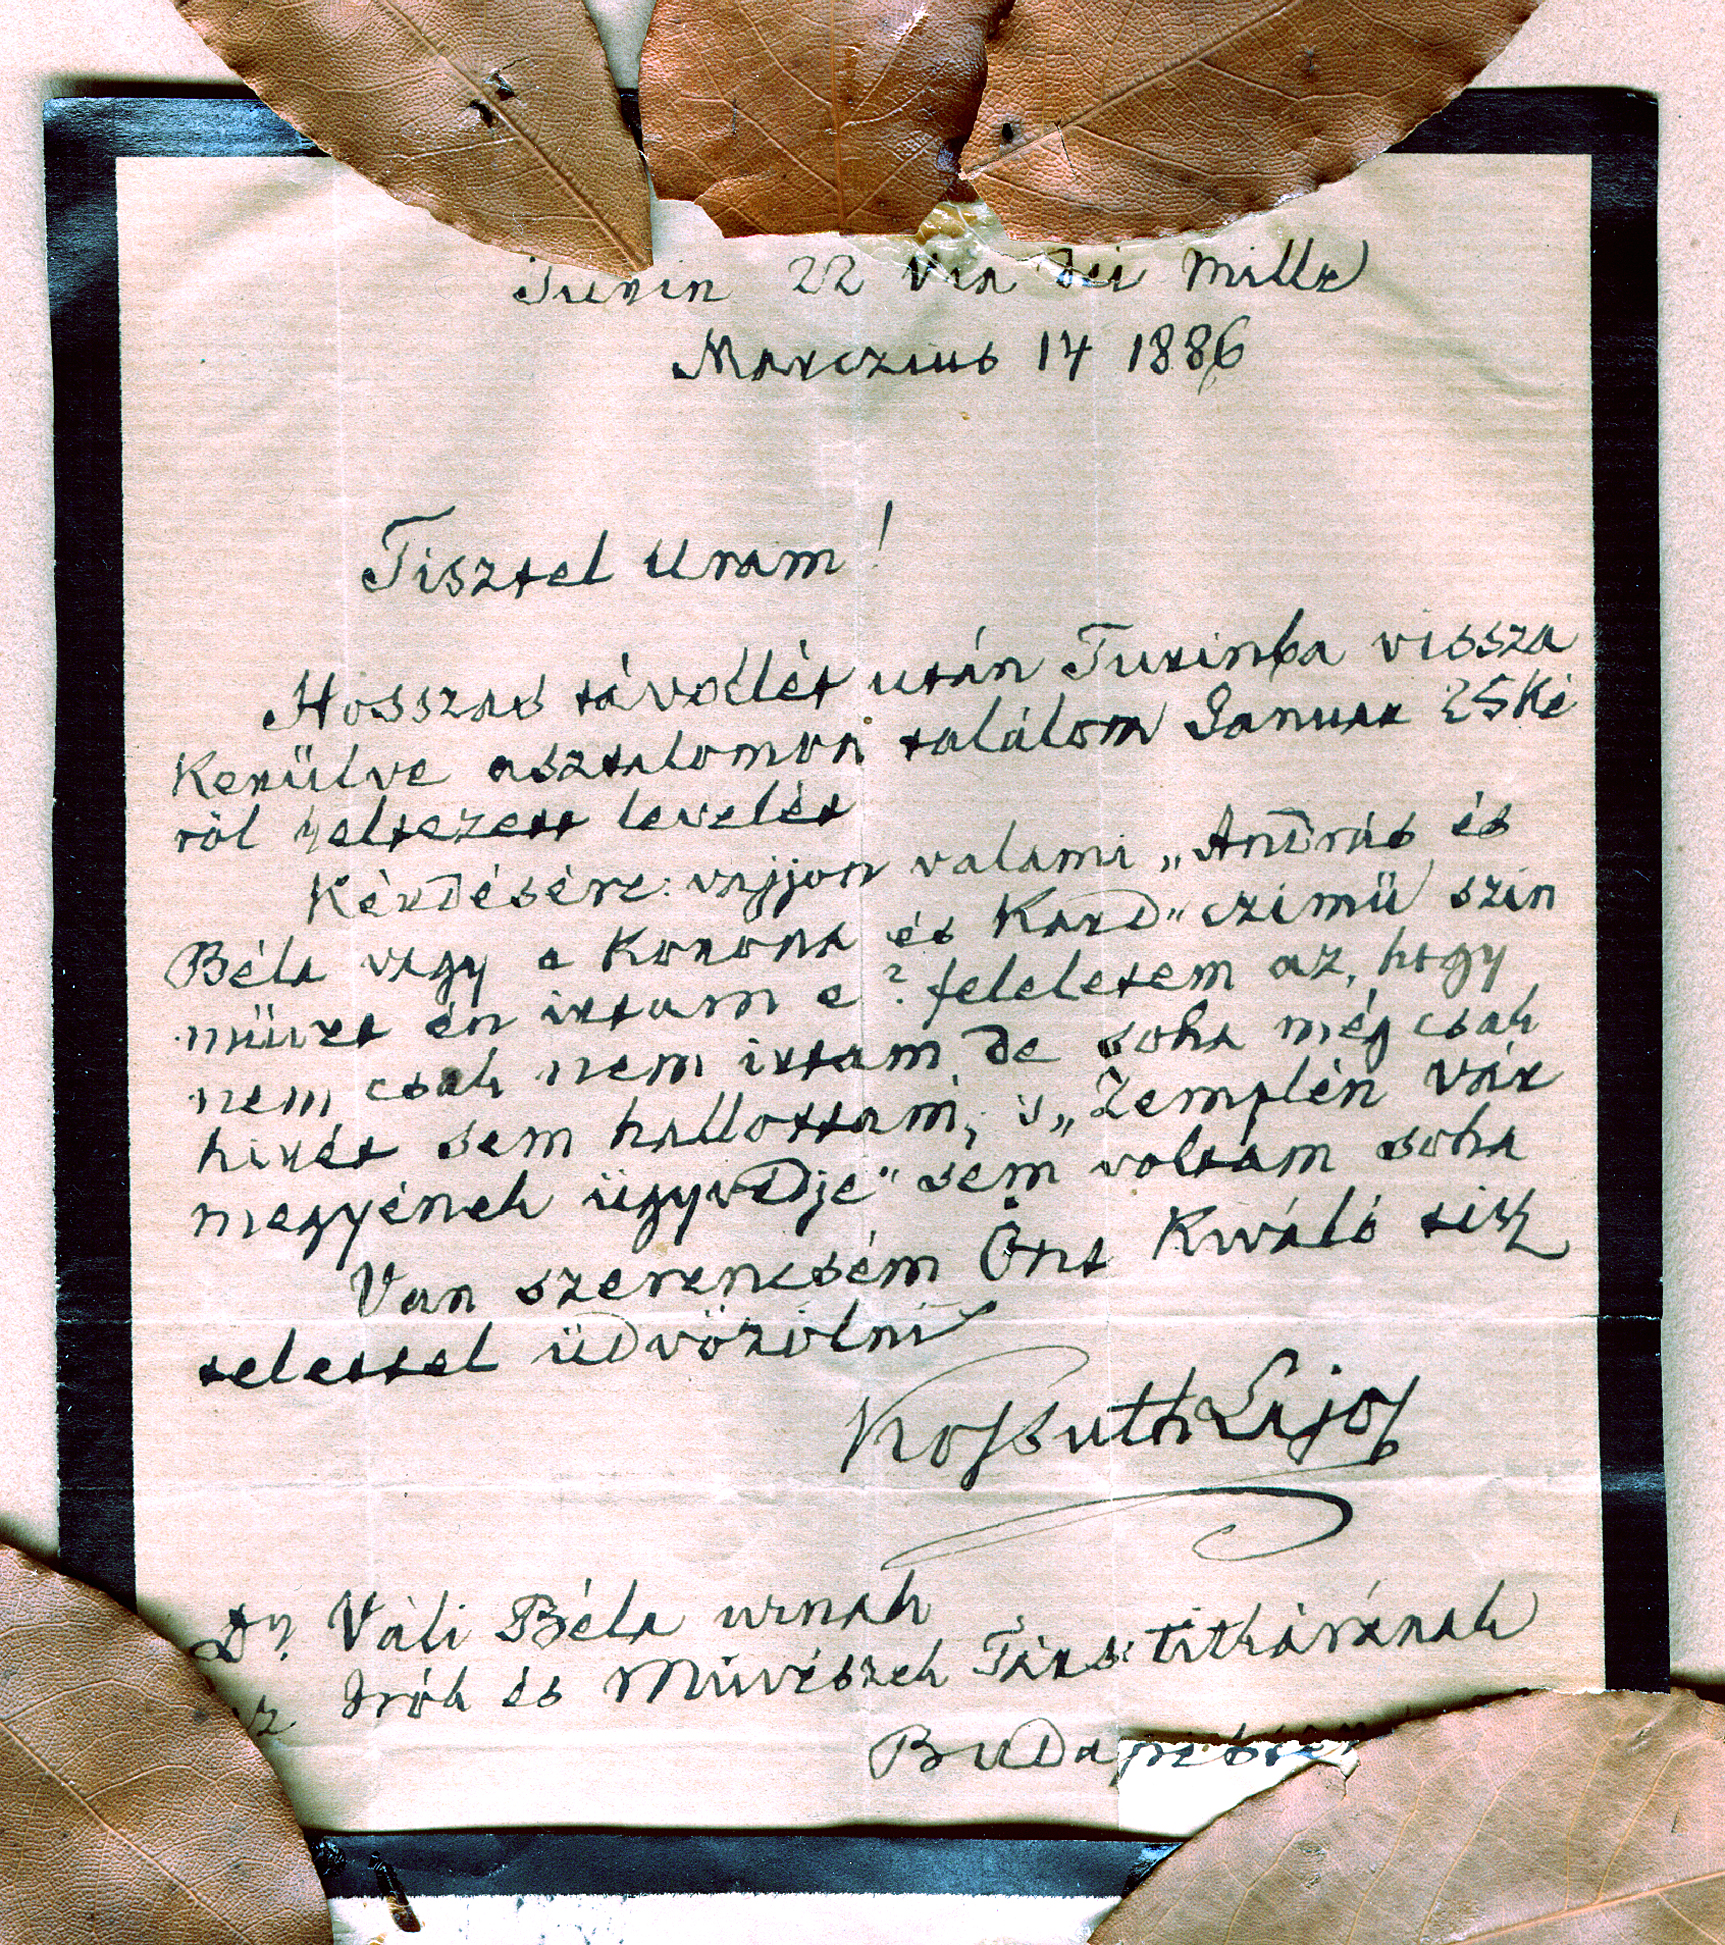 Turin 22 Via dei Mille
Marczius 14 1886
Tisztel Uram!
Hosszas távollét után Turinba vissza
kerülve asztalomon találom Januar 25ki
röl keltezett levelét
Kérdésére: vajjon valami „András és
Béla vagy a Korona és Kard" czimü szin
müvet én irtam e? feleletem az, hogy
nem csak nem irtam de soha még csak
hirét sem hallottam, s „Zemplén vár
megyének ügyvédje" sem voltam soha
Van szerencsém Önt Kiváló tisz
telettel üdvözölni
Kossuth Lajos
Dr. Váli Béla urnak
az Irók és Müvészek Társ. titkárának
Budapesten